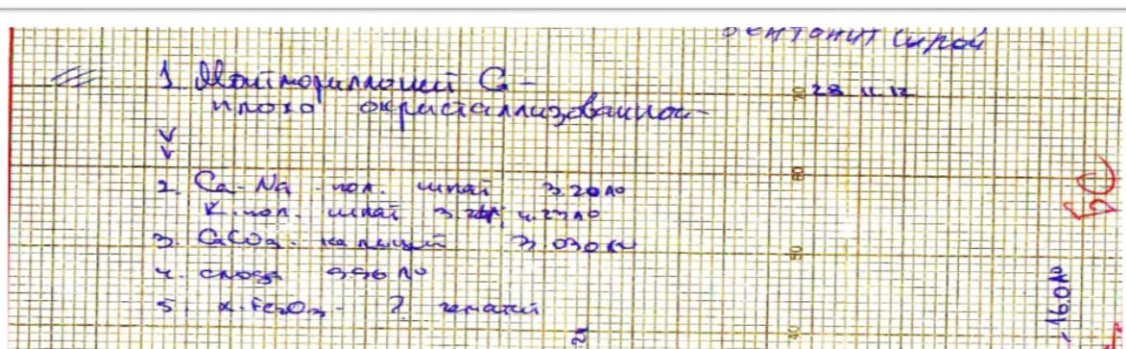 бентонит сырой
1. Монтмориллонит Ca -
плохо окристаллизованной -
28 11 12
2. Ca-Na - пол. шпат 3.20 Å
K. пол. шпат 3.24 Å; 4.23 Å
3. CaCO3 - кальцит 3.030 Å
4. слюда 9.96 Å
5. α-Fe2O3 - ? гематит
70
60
50
40
БС
- 16.0 Å